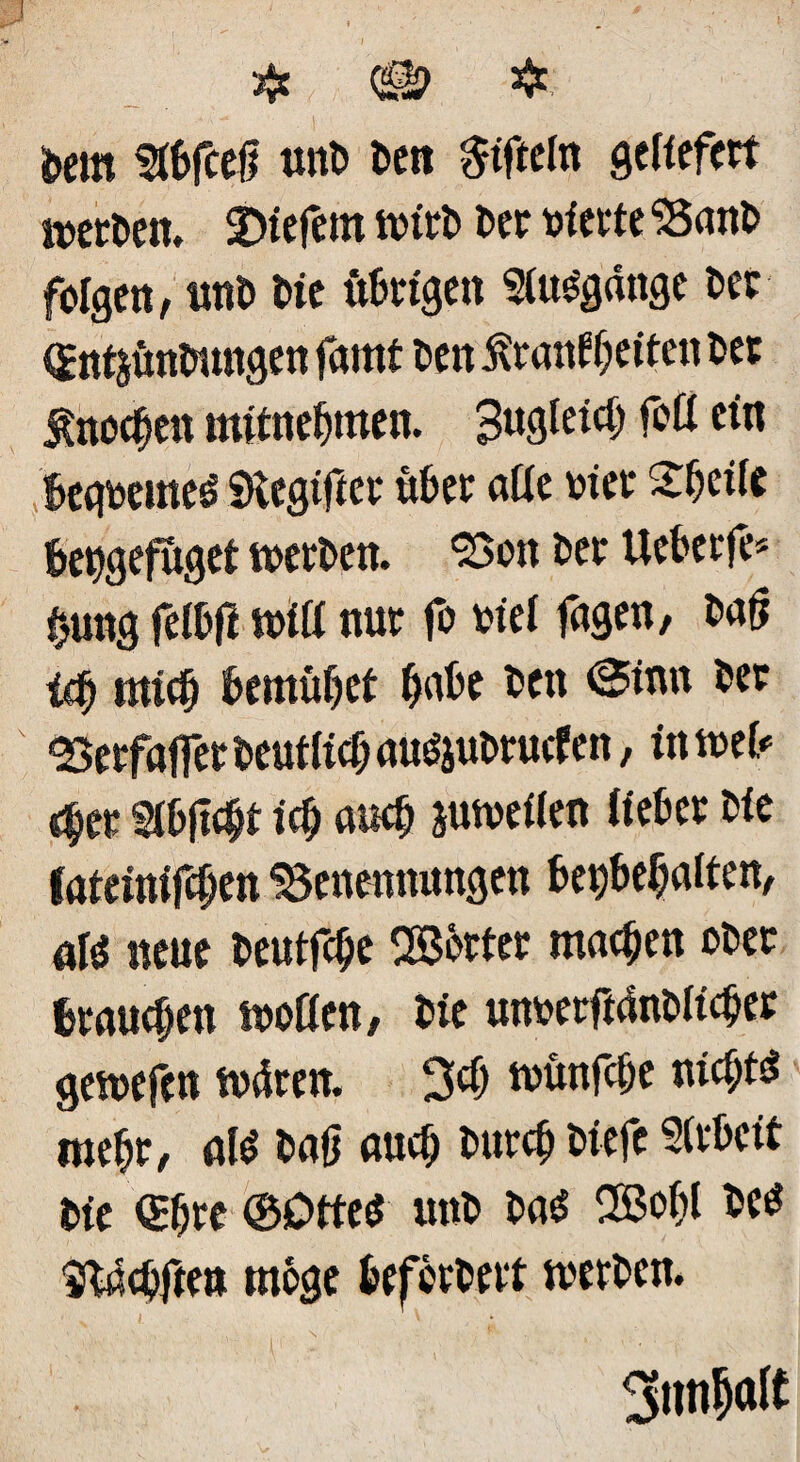 dem Abſceß und den Fiſteln geliefert
werden. Dieſem wird der vierte Band
folgen, und die übrigen Ausgänge der
Entzündungen ſamt den Krankheiten der
Knochen mitnehmen. Zugleich ſoll ein
beqvemes Regiſter über alle vier Theile
beygefüget werden. Von der Ueberſe-
tzung ſelbſt will nur ſo viel ſagen, daß
ich mich bemühet habe den Sinn der
Verfaſſer deutlich auszudrucken, in wel-
cher Abſicht ich auch zuweilen lieber die
lateiniſchen Benennungen beybehalten,
als neue deutſche Wörter machen oder
brauchen wollen, die unverſtändlicher
geweſen wären. Ich wünſche nichts
mehr, als daß auch durch dieſe Arbeit
die Ehre GOttes und das Wohl des
Nächſten möge befördert werden.
Innhalt